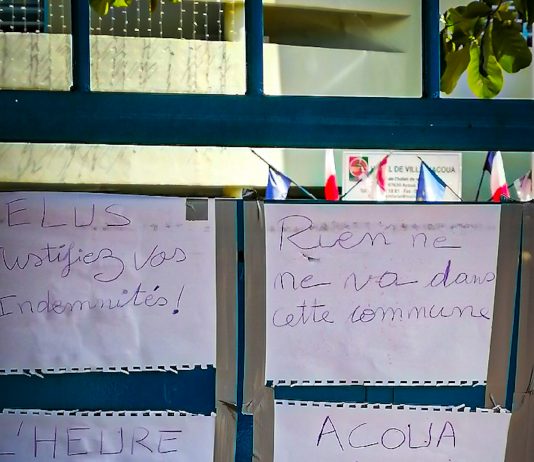 L DE VILL ACOUA
ELUS
ustifiez vos
Indemnités!
Rien ne
ne va dans
cette commune
L'HEURE
ACOUA